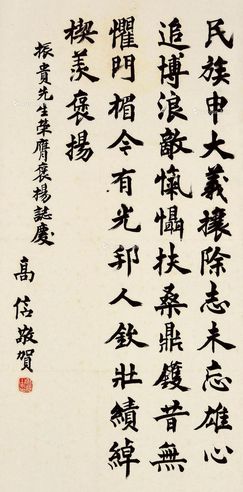 民族申大義攘除志未忘雄心
追博浪敵愾懾扶桑鼎鑊昔無
懼門楣今有光邦人欽壯績綽
楔羨褒揚
振貴先生榮膺褒揚誌慶
高信敬賀